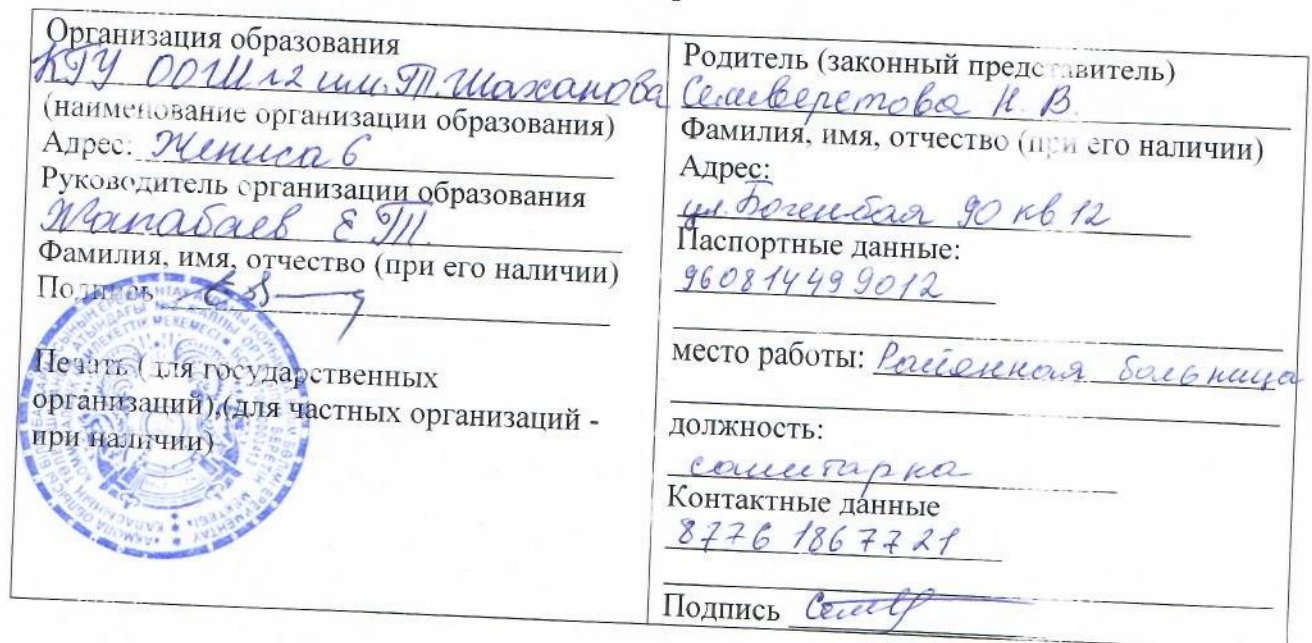 Организация образования
КГУ ООШ №2 им. Т. Шаханова
(наименование организации образования)
Адрес: Жениса 6
Руководитель организации образования
Жапабаев Е Т.
Фамилия, имя, отчество (при его наличии)
Подпись
Печать (для государственных
организаций),(для частных организаций -
при наличии)
Родитель (законный представитель)
Семверетова Н. В.
Фамилия, имя, отчество (при его наличии)
Адрес:
ул. Богенбая 90 кв 12
Паспортные данные:
960814499012
место работы: Районная больница
должность:
санитарка
Контактные данные
8776 1867721
Подпись